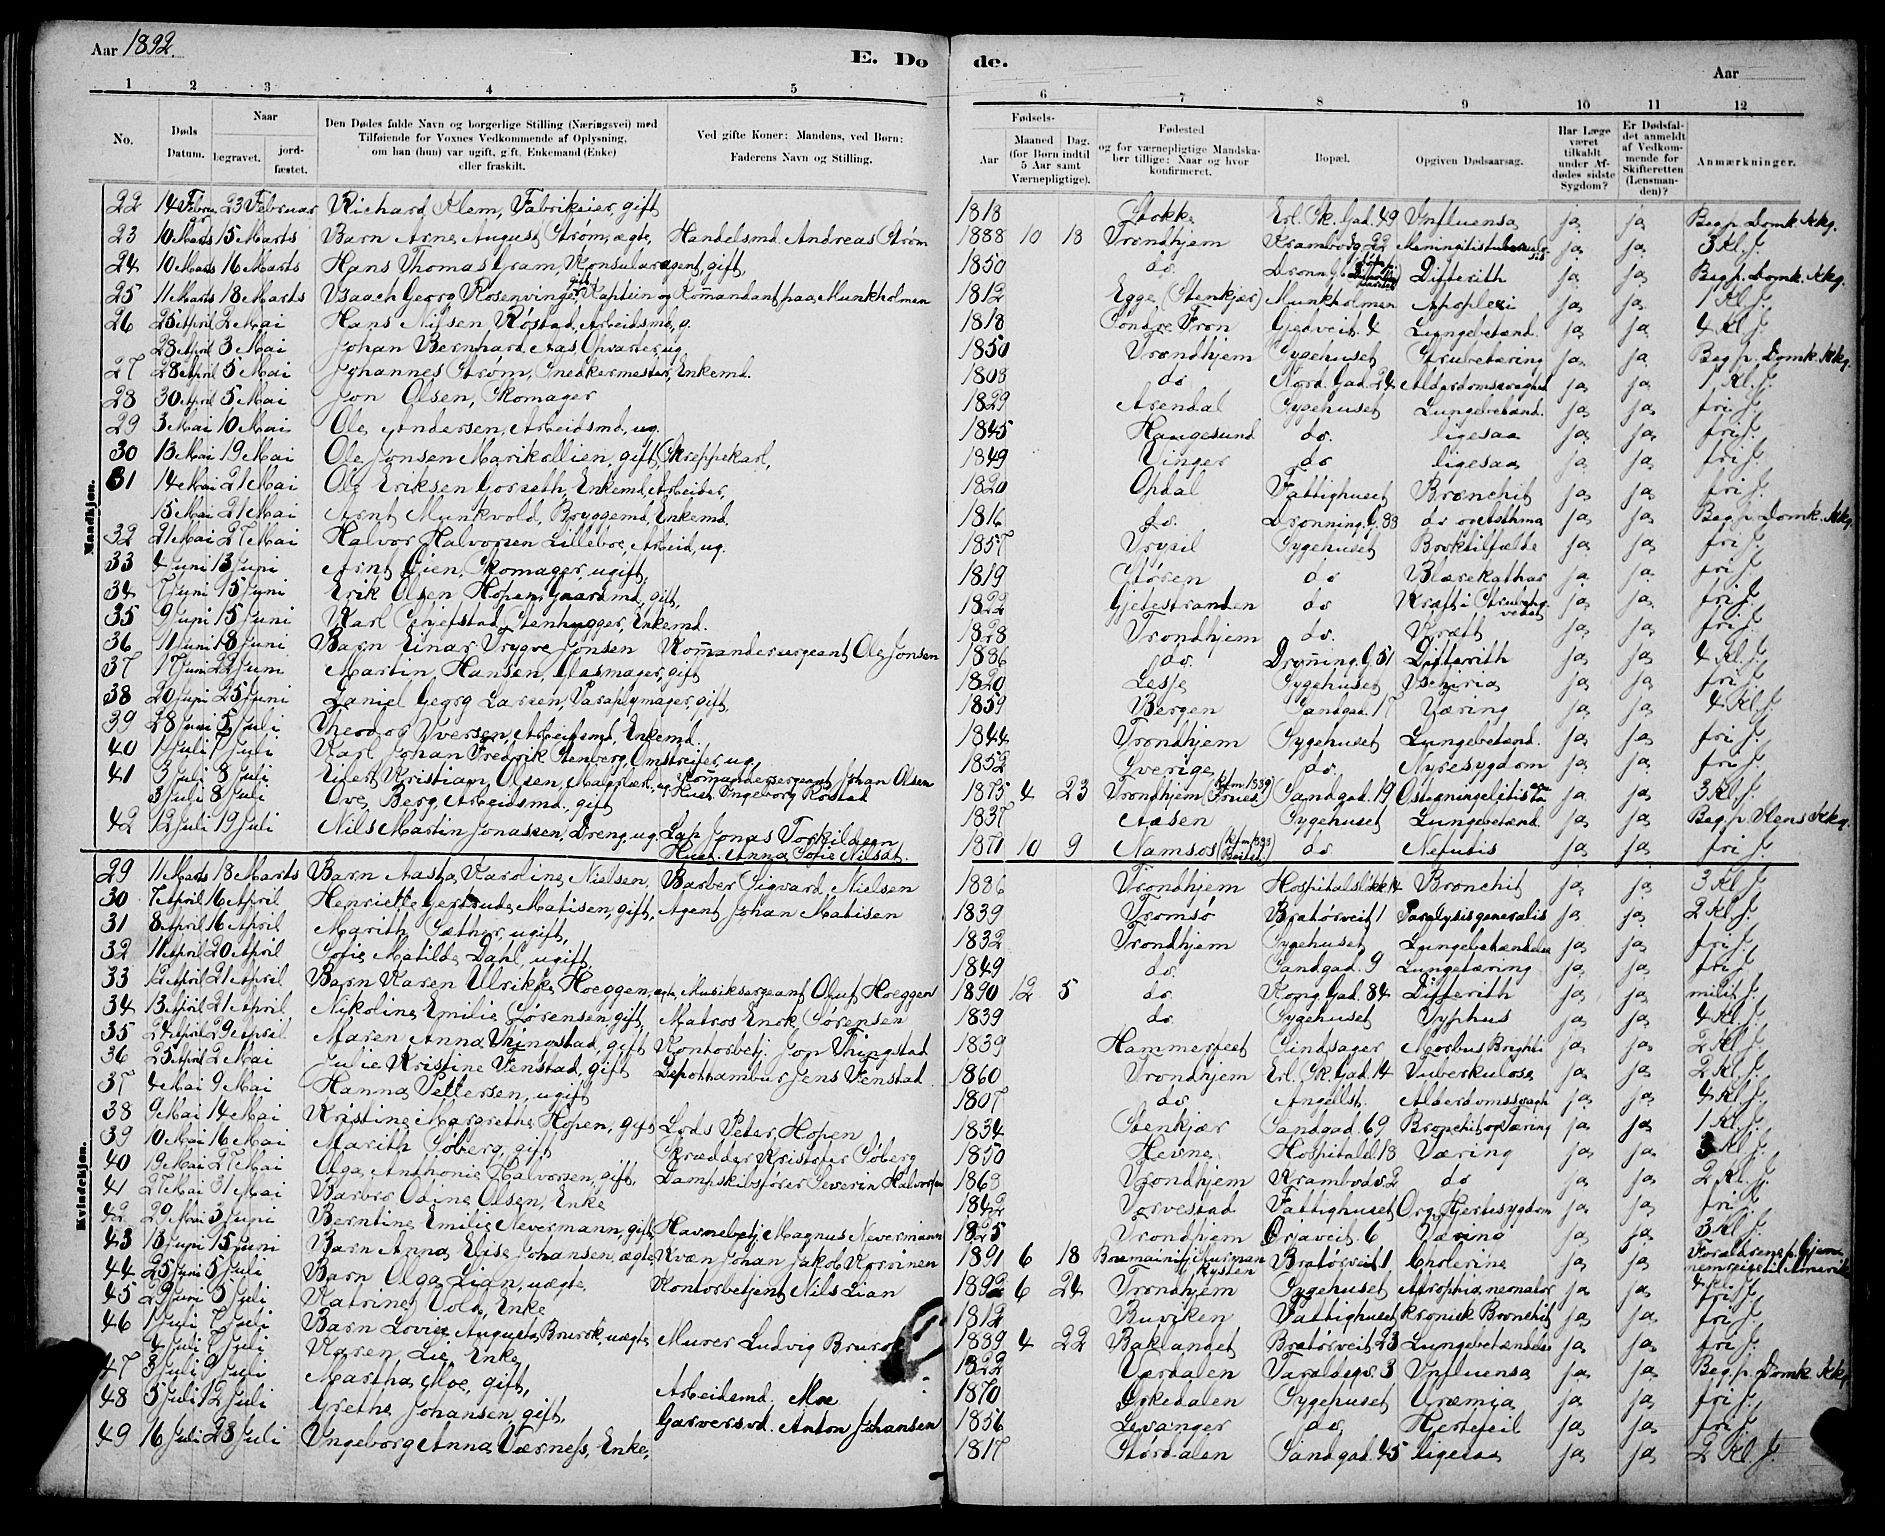 Aar 1892.
E. Dø de.
Aar
1 2 3 4 5 6 7 8 9 10 11 12
No.
Døds Datum.
Naar
begravet.
jordfæstet.
Den Dødes fulde Navn og borgerlige Stilling (Næringsvei) med
Tilføiende for Voxnes Vedkommende af Oplysning,
om han (hun) var ugift, gift, Enkemand (Enke)
eller fraskilt.
Ved gifte Koner: Mandens, ved Børn:
Faderens Navn og Stilling.
Fødsels-
Aar
Maaned
Dag.
(for Børn indtil
5 Aar samt
Værnepligtige).
Fødested
og for værnepligtige Mandskaber tillige: Naar og hvor
konfirmeret.
Bopæl.
Opgiven Dødsaarsag.
Har Læge
været
tilkaldt
under Afdødes sidste
Sygdom?
Er Dødsfaldet anmeldt
af Vedkommende for
Skifteretten
(Lensmanden)?
Anmærkninger.
Mandkjøn.
22 14 Febru 23 Februar Richard Klem, Fabrikeier, gift 1818 Stokke Erl. Sk. Gad. 49 Influensa ja ja Beg. p. Domk. Kkg.
23 10 Marts 15 Marts Barn Arne August Strøm, ægte, Handelsmd. Andreas Strøm 1888 10 18 Trondhjem Krambodg. 22 ja ja 3 Kl. J.
24 10 Marts 16 Marts Hans Thomas Gram, Konsularagent, gift, 1850 do. Dronn. G. Difterith ja ja Beg. p. Domk. Kkg.
25 11 Marts 18 Marts Isaach Georg Rosenvinge, gift Kaptein og Kommandant paa Munkholmen 1812 Egge (Stenkjær) Munkholmen Apoplexi ja ja 1 Kl. J.
26 25 April 2 Mai Hans Nilsen Røstad, Arbeidsmd, g. 1818 Søndre Fron Gjetveit. 4 Lungebetænd. ja ja 4 Kl. J.
28 April 3 Mai Johan Bernhard Aas, Opvarter, ug. 1850 Trondhjem Sygehuset Strubetæring ja ja Beg. p. Domk. Kkg.
27 28 April 5 Mai Johannes Strøm, Snedkermester, Enkemd. 1808 do Nord. Gad. 24 Alderdomssvaghed ja ja 1 Kl. J.
28 30 April 5 Mai Jon Olsen, Skomager 1829 Arendal Sygehuset Lungebetænd. ja ja fri J.
29 3 Mai 10 Mai Ole Andersen, Arbeidsmd, ug. 1845 Haugesund do. ligesaa ja ja fri J.
30 13 Mai 19 Mai Ole Jonsen Marikollien, gift, Skreppekarl, 1849 Vinger do ligesaa ja ja fri J.
31 14 Mai 21 Mai Ole Eriksen Gorseth, Enkemd, Arbeider, 1820 Opdal Fattighuset Bronchit ja ja fri J.
15 Mai 21 Mai Arnt Munkvold, Bryggemd, Enkemd. 1816 do. Dronning. G. 33 do og Asthma ja ja Beg. p. Domk. Kkg.
32 21 Mai 27 Mai Halvor Halvorsen Lilleboe, Arbeid, ug. 1857 Trysil Sygehuset Broktilfælde ja ja fri J.
33 4 Juni 13 Juni Arnt Lien, Skomager, ugift, 1819 Støren do Blærekathar ja ja fri J.
34 7 Juni 15 Juni Erik Olsen Hopen, Gaardmd, gift, 1822 Gjetestranden do Kræft i Strubehovedet ja ja fri J.
35 9 Juni 15 Juni Karl Schiefstad, Stenhugger, Enkemd. 1828 Trondhjem do. Kræft ja ja fri J.
36 11 Juni 18 Juni Barn Einar Trygve Jonsen Kommandersergeant Ole Jonsen 1886 do. Dronning. G. 51 Difterith ja ja 4 Kl. J.
37 17 Juni 22 Juni Martin Hansen, Glasmager, gift 1820 Lesje Sygehuset Ischiria ja ja fri J.
38 20 Juni 25 Juni Daniel Georg Larsen, Paraplymager, gift, 1859 Bergen Sandgad. 17 Tæring ja ja 4 Kl. J.
39 28 Juni 5 Juli Theodor Iversen, Arbeidsmd, Enkemd. 1844 Trondhjem Sygehuset Lungebetænd. ja ja fri J.
40 1 Juli 7 Juli Karl Johan Fredrik Stenberg, Omstreifer, ug. 1852 Sverige do. Nyresygdom ja ja fri J.
41 3 Juli 8 Juli Edert Kristian Olsen, Malerlærl, ug. Kommandersergeant Johan Olsen Hust. Ingeborg Røstad 1873 4 23 Trondhjem Sandgad. 19 ja ja 3 Kl. J.
3 Juli 8 Juli Ove Berg, Arbeidsmd. gift 1837 Aasen Sygehuset Lungebetænd. ja ja Beg. p. Stens Kkg.
42 12 Juli 19 Juli Nils Martin Jonassen, Dreng, ug. Lap Jonas Torkildsen Hust. Anna Sofie Nilsdt. 1877 10 9 Namsos do. Nefritis ja ja fri J.
Kvindekjøn.
29 11 Marts 18 Marts Barn Aasta Karoline Nielsen, Barber Sigvard Nielsen 1886 Trondhjem Hospitalsløkk. 14 Bronchit ja ja 3 Kl. J.
30 7 April 16 April Henriette Gertrude Matisen, gift, Agent Johan Matisen 1839 Tromsø Bratørveit 1 Paralysis generalis ja ja 2 Kl. J.
31 8 April 16 April Marith Sæther, ugift, 1832 Trondhjem Sygehuset Lungebetændelse ja ja fri J.
32 11 April 20 April Sofie Matilde Dahl, ugift 1849 do. Sandgad. 9 Lungetæring ja ja fri J.
33 12 April 21 April Barn Karen Ulrikke Hoeggen, ægte, Musiksergeant Oluf Hoeggen 1890 12 5 do. Kong. Gad. 84 Difterith ja ja milit J.
34 13 April 21 April Nikoline Emilie Sørensen, gift, Matros Enok Sørensen 1839 do. Sygehuset Typhus ja ja 4 Kl. J.
35 24 April 29 April Maren Anna Thingstad, gift Kontorbetj. Jon Thingstad 1839 Hammerfest Lindsager Morbus Brightii ja ja 2 Kl. J.
36 25 April 2 Mai Julie Kristine Venstad, gift Depottambur Jens Venstad 1860 Trondhjem Erl. Sk. Gad. 14 Tuberkulose ja ja 2 Kl. J.
37 4 Mai 9 Mai Hanna Pettersen, ugift 1807 do. Angellst. Alderdomssvagh ja ja 4 Kl. J.
38 9 Mai 14 Mai Kristine Margrethe Hopen, gift Lods Peter Hopen 1834 Stenkjær Sandgad. 69 Bronchit og Tæring ja ja 1 Kl. J.
39 10 Mai 16 Mai Marith Soberg, gift Skrædder Kristofer Soberg 1850 Hevne Hospitald. 18 Tæring ja ja 3 Kl. J.
40 19 Mai 27 Mai Olga Anthonie Halvorsen, gift, Dampskibsfører Severin Halvorsen 1863 Trondhjem Krambodv. 2 do ja ja 2 Kl. J.
41 27 Mai 31 Mai Barbro Odine Olsen, Enke 1842 Torvestad Fattighuset Org. Hjertesygdom ja ja fri J.
42 29 Mai 3 Juni Berntine Emilie Nevermann, gift, Havnebetj. Magnus Nevermann 1825 Trondhjem Ørjaveit. 6 Tæring ja ja 3 Kl. J.
43 13 Juni 15 Juni Barn Anna Elise Johansen, ægte, Kvæn Johan Jakob Korvinen 1891 6 18 Murmankysten Bratørveit 1 Cholerine ja ja Forældrene p. Gjennemreise til Amerik
44 25 Juni 5 Juli Barn Olga Lian, uægte Kontorbetjent Nils Lian 1892 6 24 Trondhjem Sygehuset Atrophia neonator ja ja 4 Kl. J.
45 29 Juni 5 Juli Katrine Vold, Enke 1812 Buviken Fattighuset kronisk Bronchit ja ja fri J.
46 1 Juli 7 Juli Barn Lovise Augusta Brurok, uægte, Murer Ludvig Brurok 1889 4 22 Baklandet Bratørveit 23 Lungebetændels ja ja fri J.
4 Juli 7 Juli Karen Lie, Enke 1822 Værdalen Taraldsgv. 3 Influensa ja ja Beg. p. Domk. Kkg.
47 3 Juli 9 Juli Martha Moe, gift, Arbeidsmd. Moe 1870 Orkedalen Sygehuset Uræmia ja ja fri J.
48 5 Juli 12 Juli Grethe Johansen, gift, Garversvd. Anton Johansen 1856 Levanger do. Hertefeil ja ja fri J.
49 16 Juli 23 Juli Ingeborg Anna Værness, Enke, 1817 Størdalen Sandgad. 45 ligesaa ja ja 2 Kl. J.